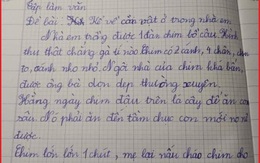 Tập làm văn
Đề bài: Kể về con vật ở trong nhà em
Nhà em trồng được 1 đàn chim bồ câu. Hình
thu thật chẳng gà tí nào. Chim có 2 cánh, 4 chân,
to, xánh nho nhỏ. Ngôi nhà của chim khá bẩn,
được ông bà dọn dẹp thường xuyên.
Hằng ngày chim đậu trên lá cây để ăn con
sâu. Nó phải ăn đến tầm chục con mới no nê
được.
Chim lớn lớn 1 chút, mẹ lại nấu cháo chim cho